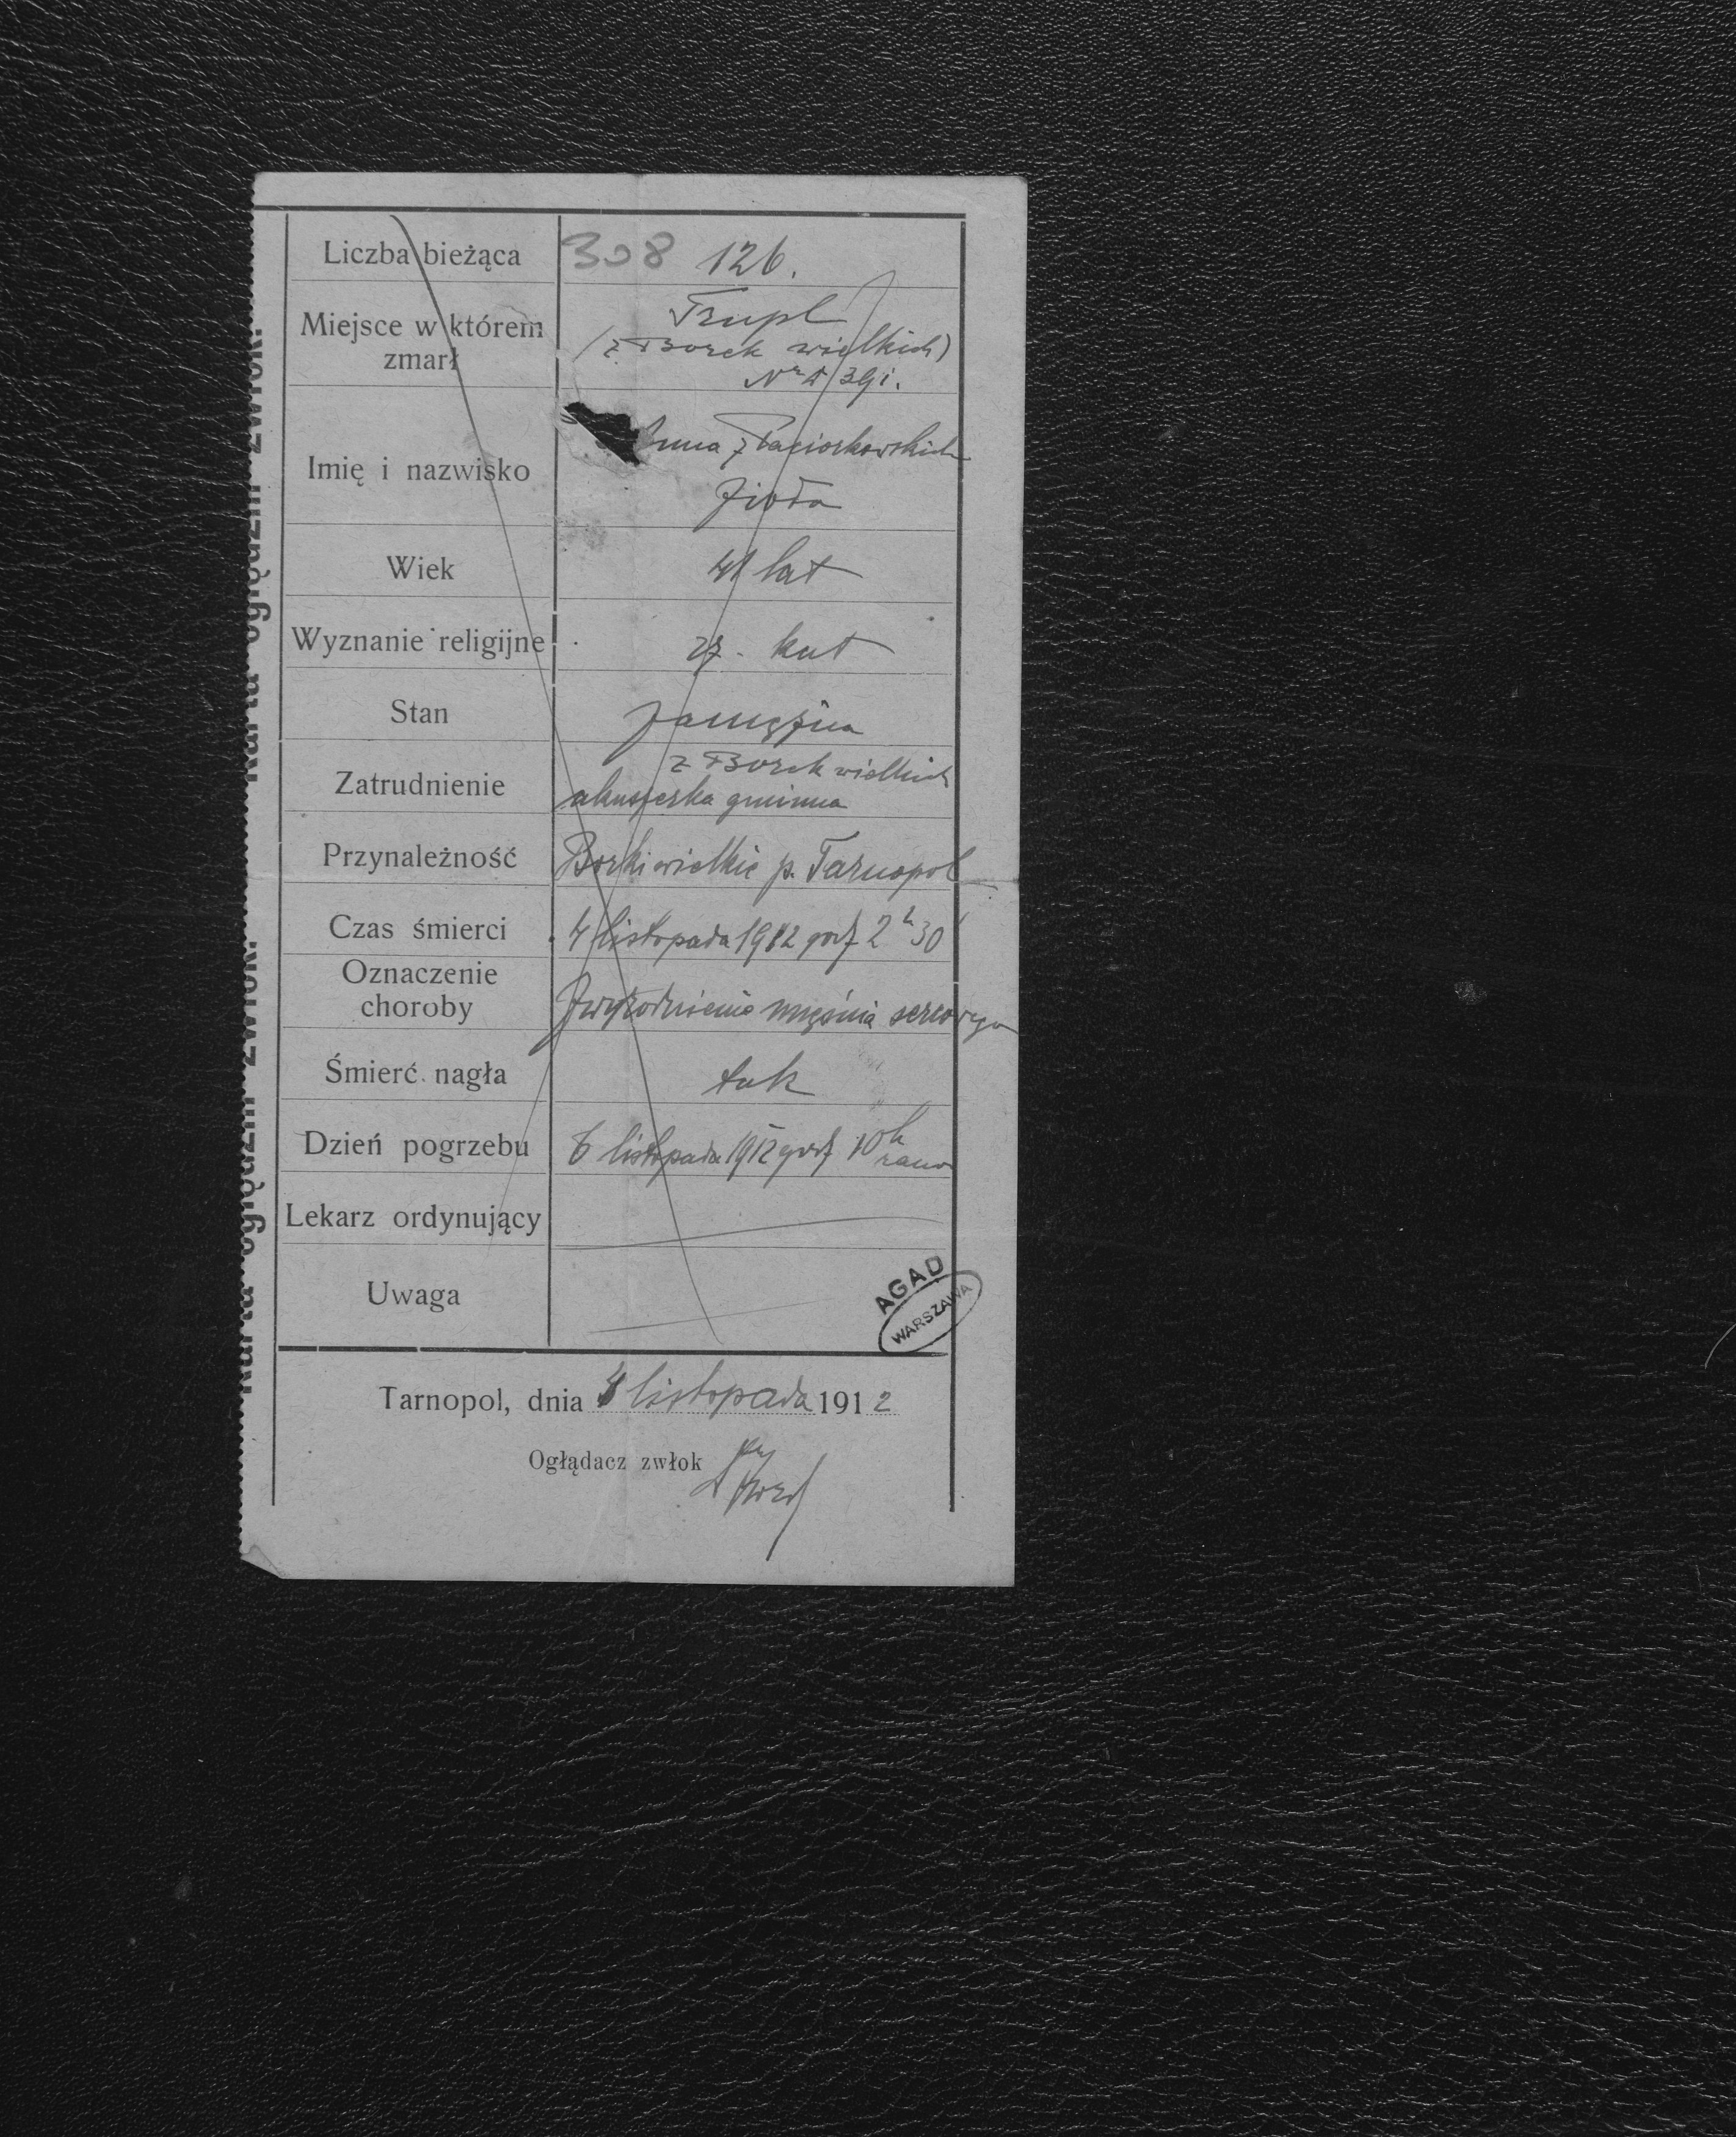 Karta oględzin zwłok. Karta oględzin zwłok.
Liczba bieżąca 308 126.
Miejsce w którem zmarł
(z Borek wielkich)
Imię i nazwisko
Anna z Paciorkowskich
Zioła
Wiek 41 lat
Wyznanie religijne rz. kat
Stan zamężna
Zatrudnienie z Borek wielkich
akuszerka gminna
Przynależność Borki wielkie p. Tarnopol
Czas śmierci 4 listopada 1912 godz 2h 30
Oznaczenie choroby Zwyrodnienie mięśnia sercowego
Śmierć nagła tak
Dzień pogrzebu 6 listopada 1912 godz 10h rano
Lekarz ordynujący
Uwaga
AGAD
WARSZAWA
Tarnopol, dnia 4 listopada 1912
Oglądacz zwłok